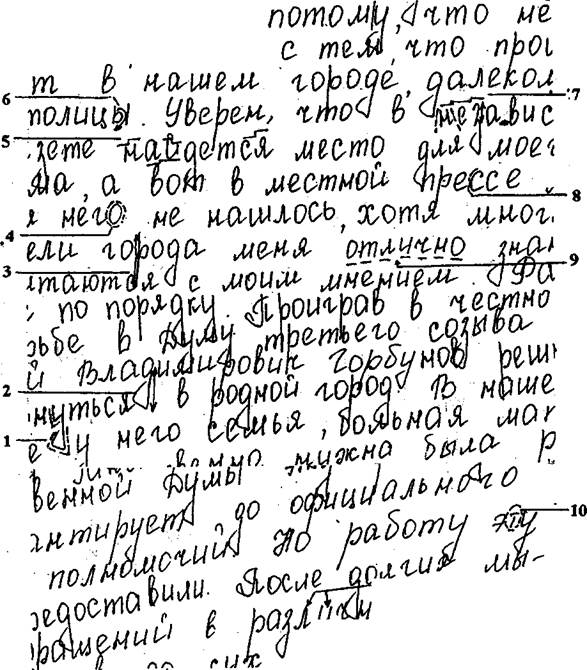 потому, что не
с тем, что прои
6 т в нашем городе, далеком 7
полицы. Уверен, что в независ
5 зете найдется место для моег
ма, а вот в местной прессе 8
4 я него не нашлось, хотя мног
ели города меня отлично зна 9
3 итаются с моим мнением. Фа
по порядку. Проиграв в честно
рьбе в Думу третьего созыва
й Владимирович Горбунов реш
2 нуться в родной город. В наше
1 е у него семья, больная мат
нужна была р
венной Думы
антирует до официального
полномочий. Но работу ему 10
редоставили. После долгих мы-
ращений в различн